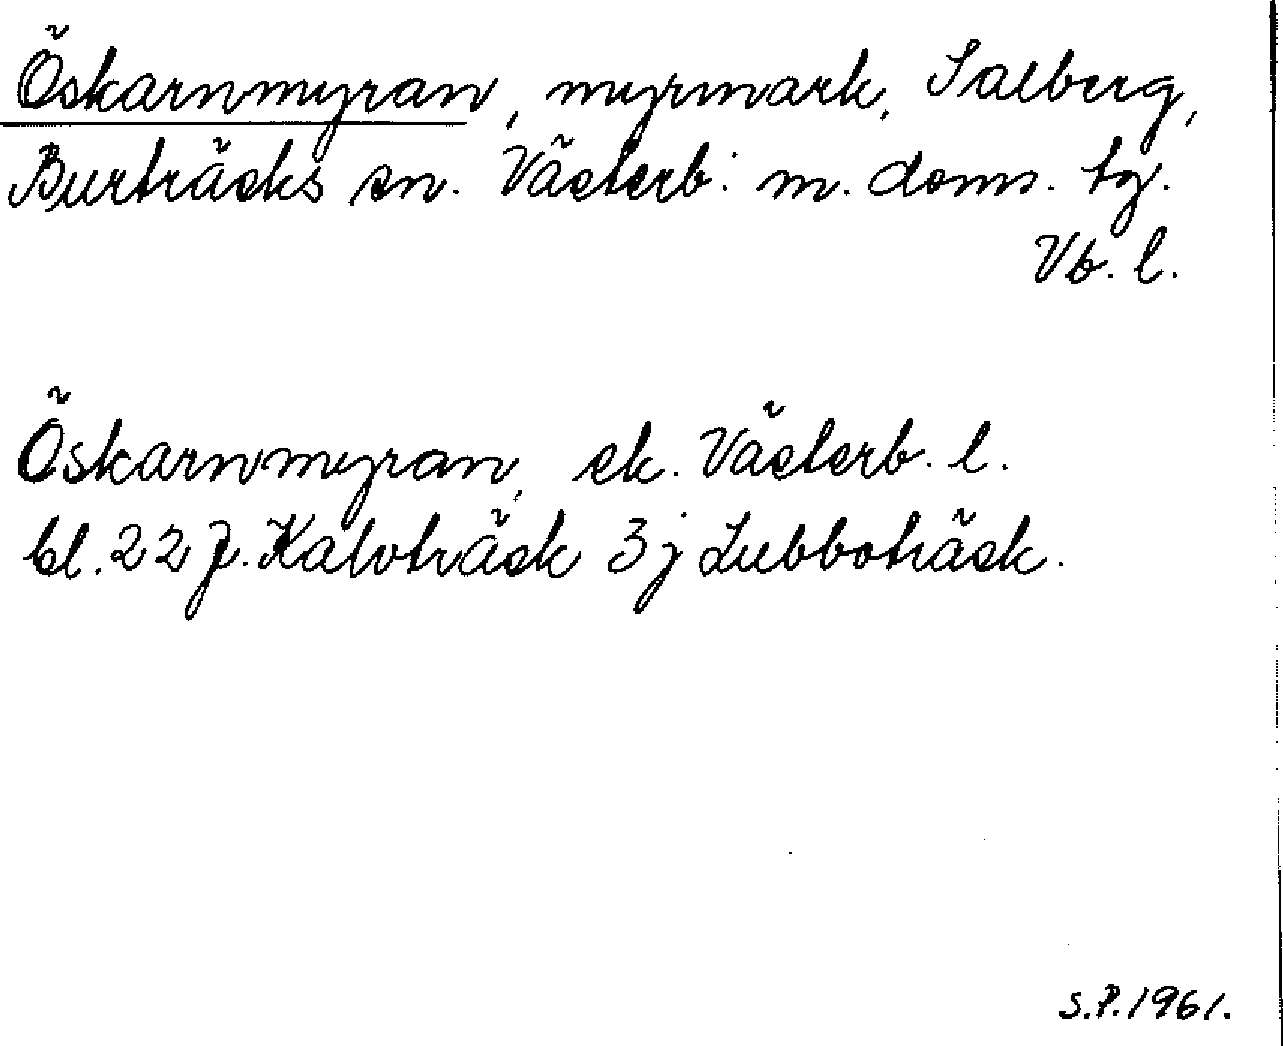 Öskarnmyran, myrmark, Salberg,
Burträsks sn. Västerb: m. doms. tg.
Vb. l.
Öskarnmyran, ek. Västerb. l.
bl. 22 J. Kalvträsk 3 j Lubboträsk.
S.P. 1961.